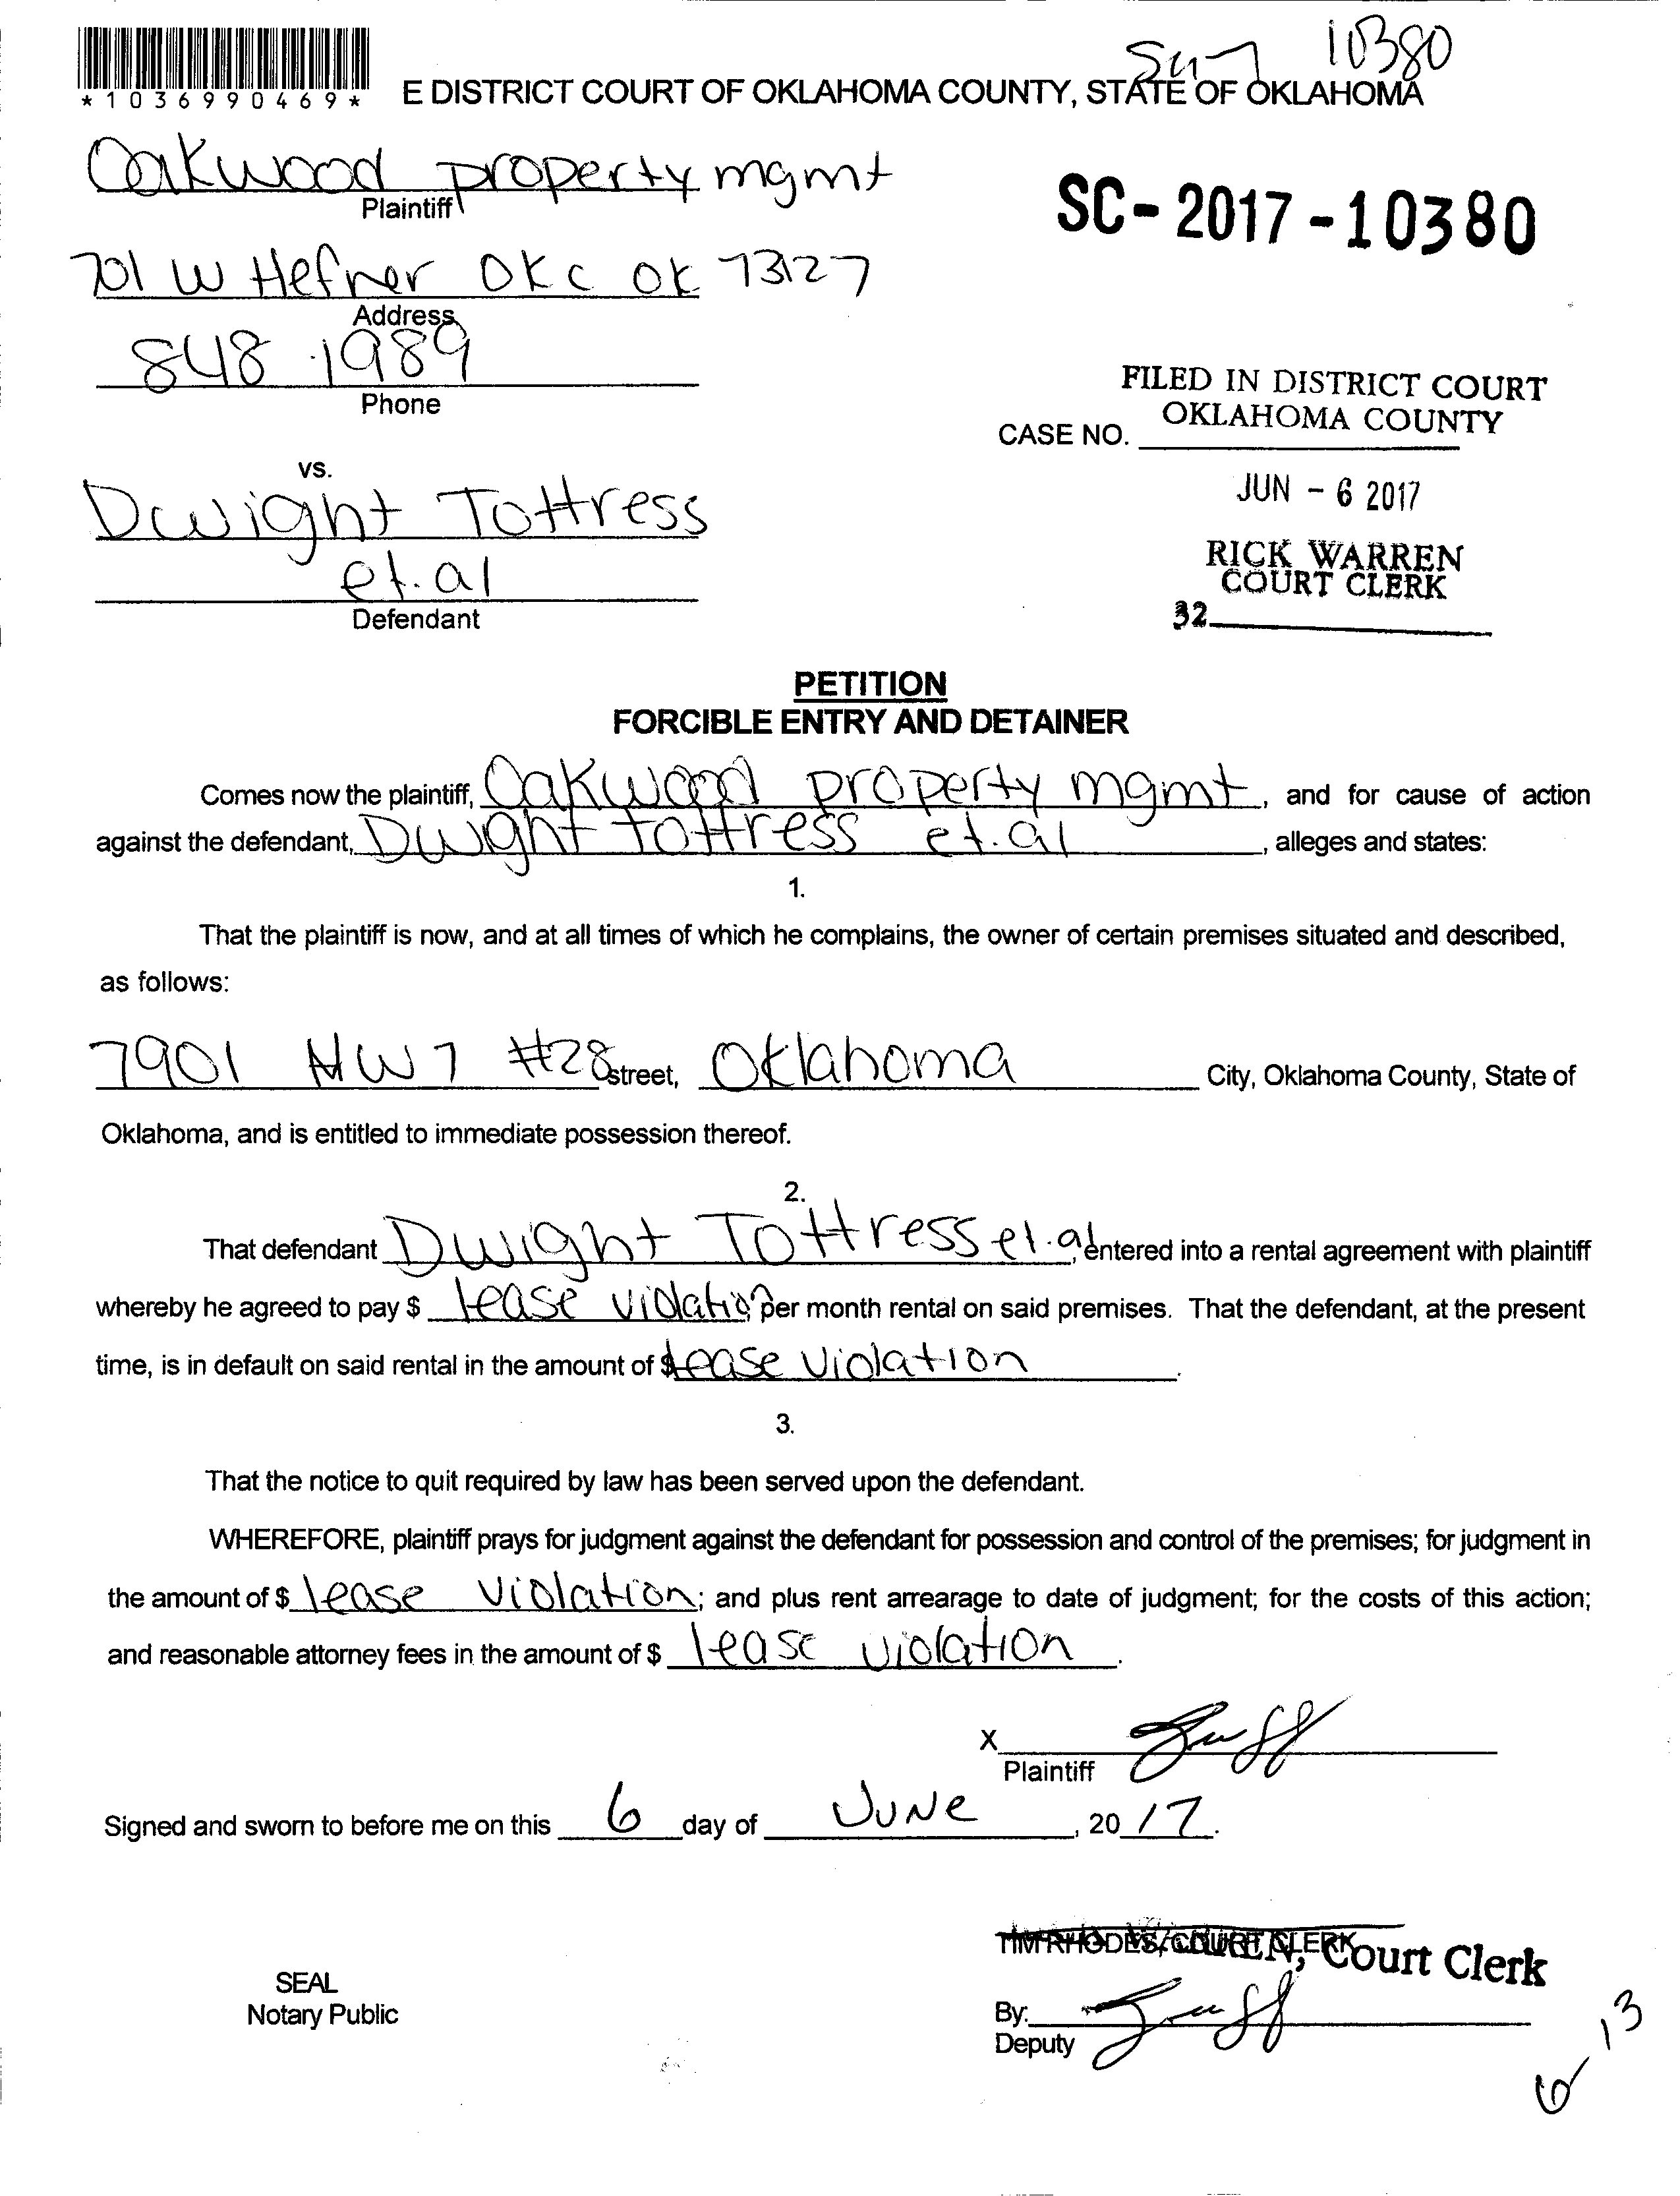 10380
*1036990469*
E DISTRICT COURT OF OKLAHOMA COUNTY, STATE OF OKLAHOMA
Oakwood property mgmt
Plaintiff
SC-2017-10380
701 W Hefner OKC OK 73127
Address
848.1989
Phone
FILED IN DISTRICT COURT
OKLAHOMA COUNTY
CASE NO.
vs.
JUN - 6 2017
Dwight Tottress
et.al
Defendant
RICK WARREN
COURT CLERK
32
PETITION
FORCIBLE ENTRY AND DETAINER
Comes now the plaintiff, Oakwood property mgmt, and for cause of action
against the defendant, Dwight Tottress et.al, alleges and states:
1.
That the plaintiff is now, and at all times of which he complains, the owner of certain premises situated and described,
as follows:
7901 NW 7 #28 street, Oklahoma City, Oklahoma County, State of
Oklahoma, and is entitled to immediate possession thereof.
2.
That defendant Dwight Tottress et.al, entered into a rental agreement with plaintiff
whereby he agreed to pay $ lease violation per month rental on said premises. That the defendant, at the present
time, is in default on said rental in the amount of $ lease violation.
3.
That the notice to quit required by law has been served upon the defendant.
WHEREFORE, plaintiff prays for judgment against the defendant for possession and control of the premises; for judgment in
the amount of $ lease violation; and plus rent arrearage to date of judgment; for the costs of this action;
and reasonable attorney fees in the amount of $ lease violation.
X
Plaintiff
Signed and sworn to before me on this 6 day of June, 2017.
TIM RHODES, COURT CLERK
Court Clerk
SEAL
Notary Public
By:
Deputy
6-13